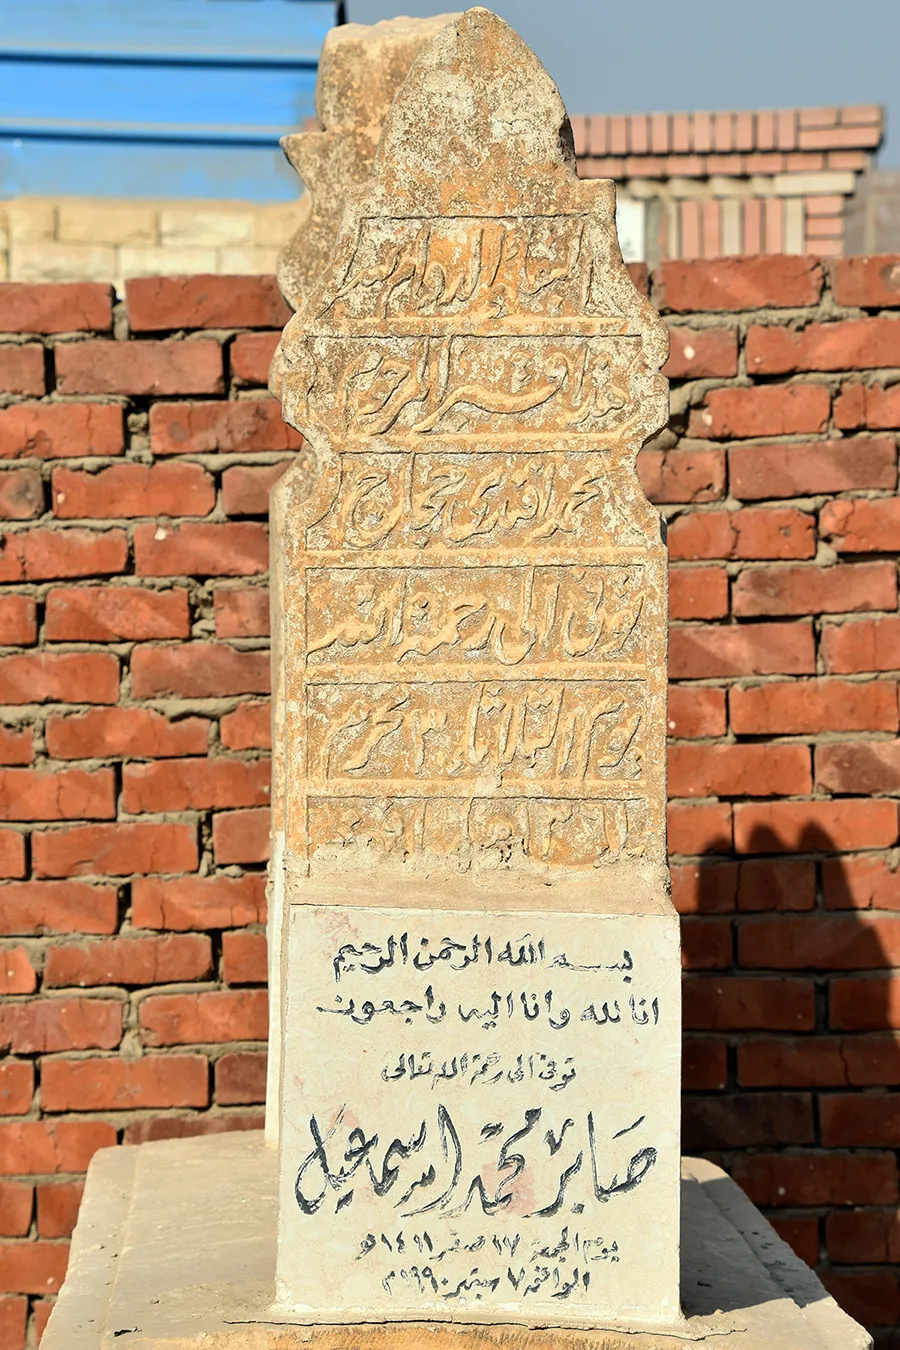 البقاء والدوام لله
هذا قبر المرحوم
محمد افندى حجاج
توفى الى رحمة الله
يوم الثلاثاء ٣ محرم
بسم الله الرحمن الرحيم
انا لله وانا اليه راجعون
توفى الى رحمة الله تعالى
صابر محمد اسماعيل
يوم الجمعة ١٧ صفر ١٤١١ھ
الموافق ٧ سبتمبر ١٩٩٠م